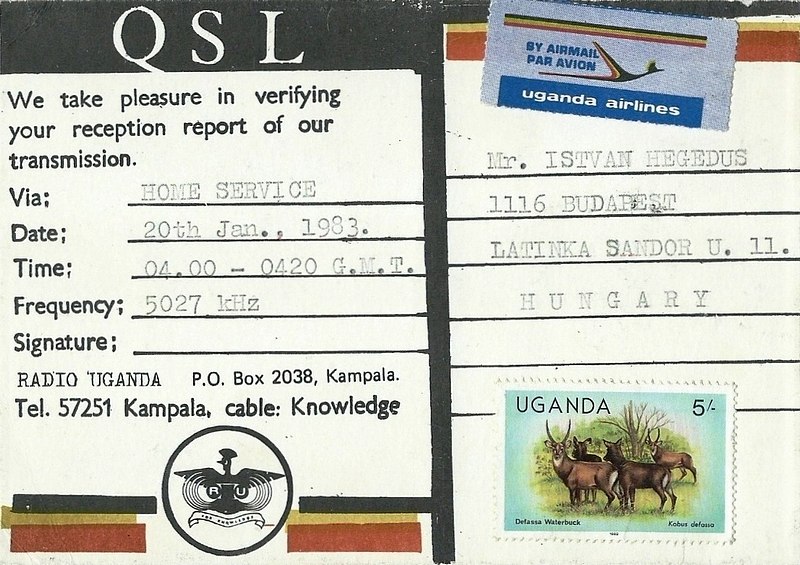 QSL
We take pleasure in verifying
your reception report of our
transmission.
Via; HOME SERVICE
Date; 20th Jan., 1983.
Time; 04.00 - 0420 G.M.T.
Frequency; 5027 kHz
Signature;
RADIO UGANDA P.O. Box 2038, Kampala.
Tel. 57251 Kampala, cable: Knowledge
R U
FOR KNOWLEDGE
BY AIRMAIL
PAR AVION
uganda airlines
Mr. ISTVAN HEGEDUS
1116 BUDAPEST
LATINKA SANDOR U. 11.
HUNGARY
UGANDA 5/-
Defassa Waterbuck Kobus defassa